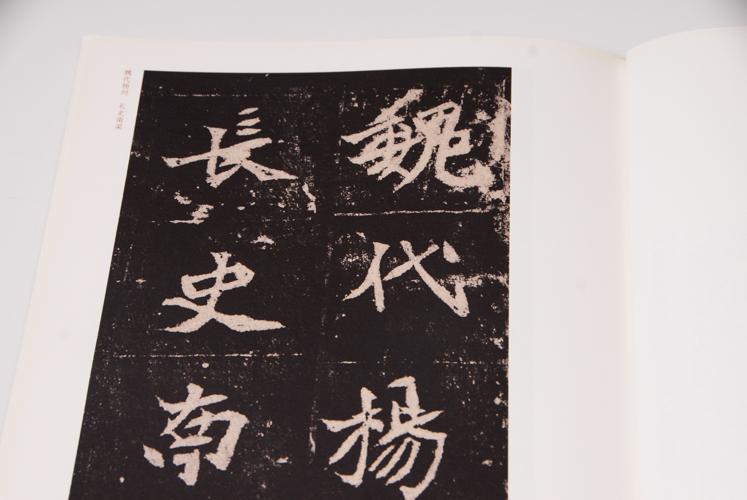 魏代楊
長史南
魏代楊州 長史南梁